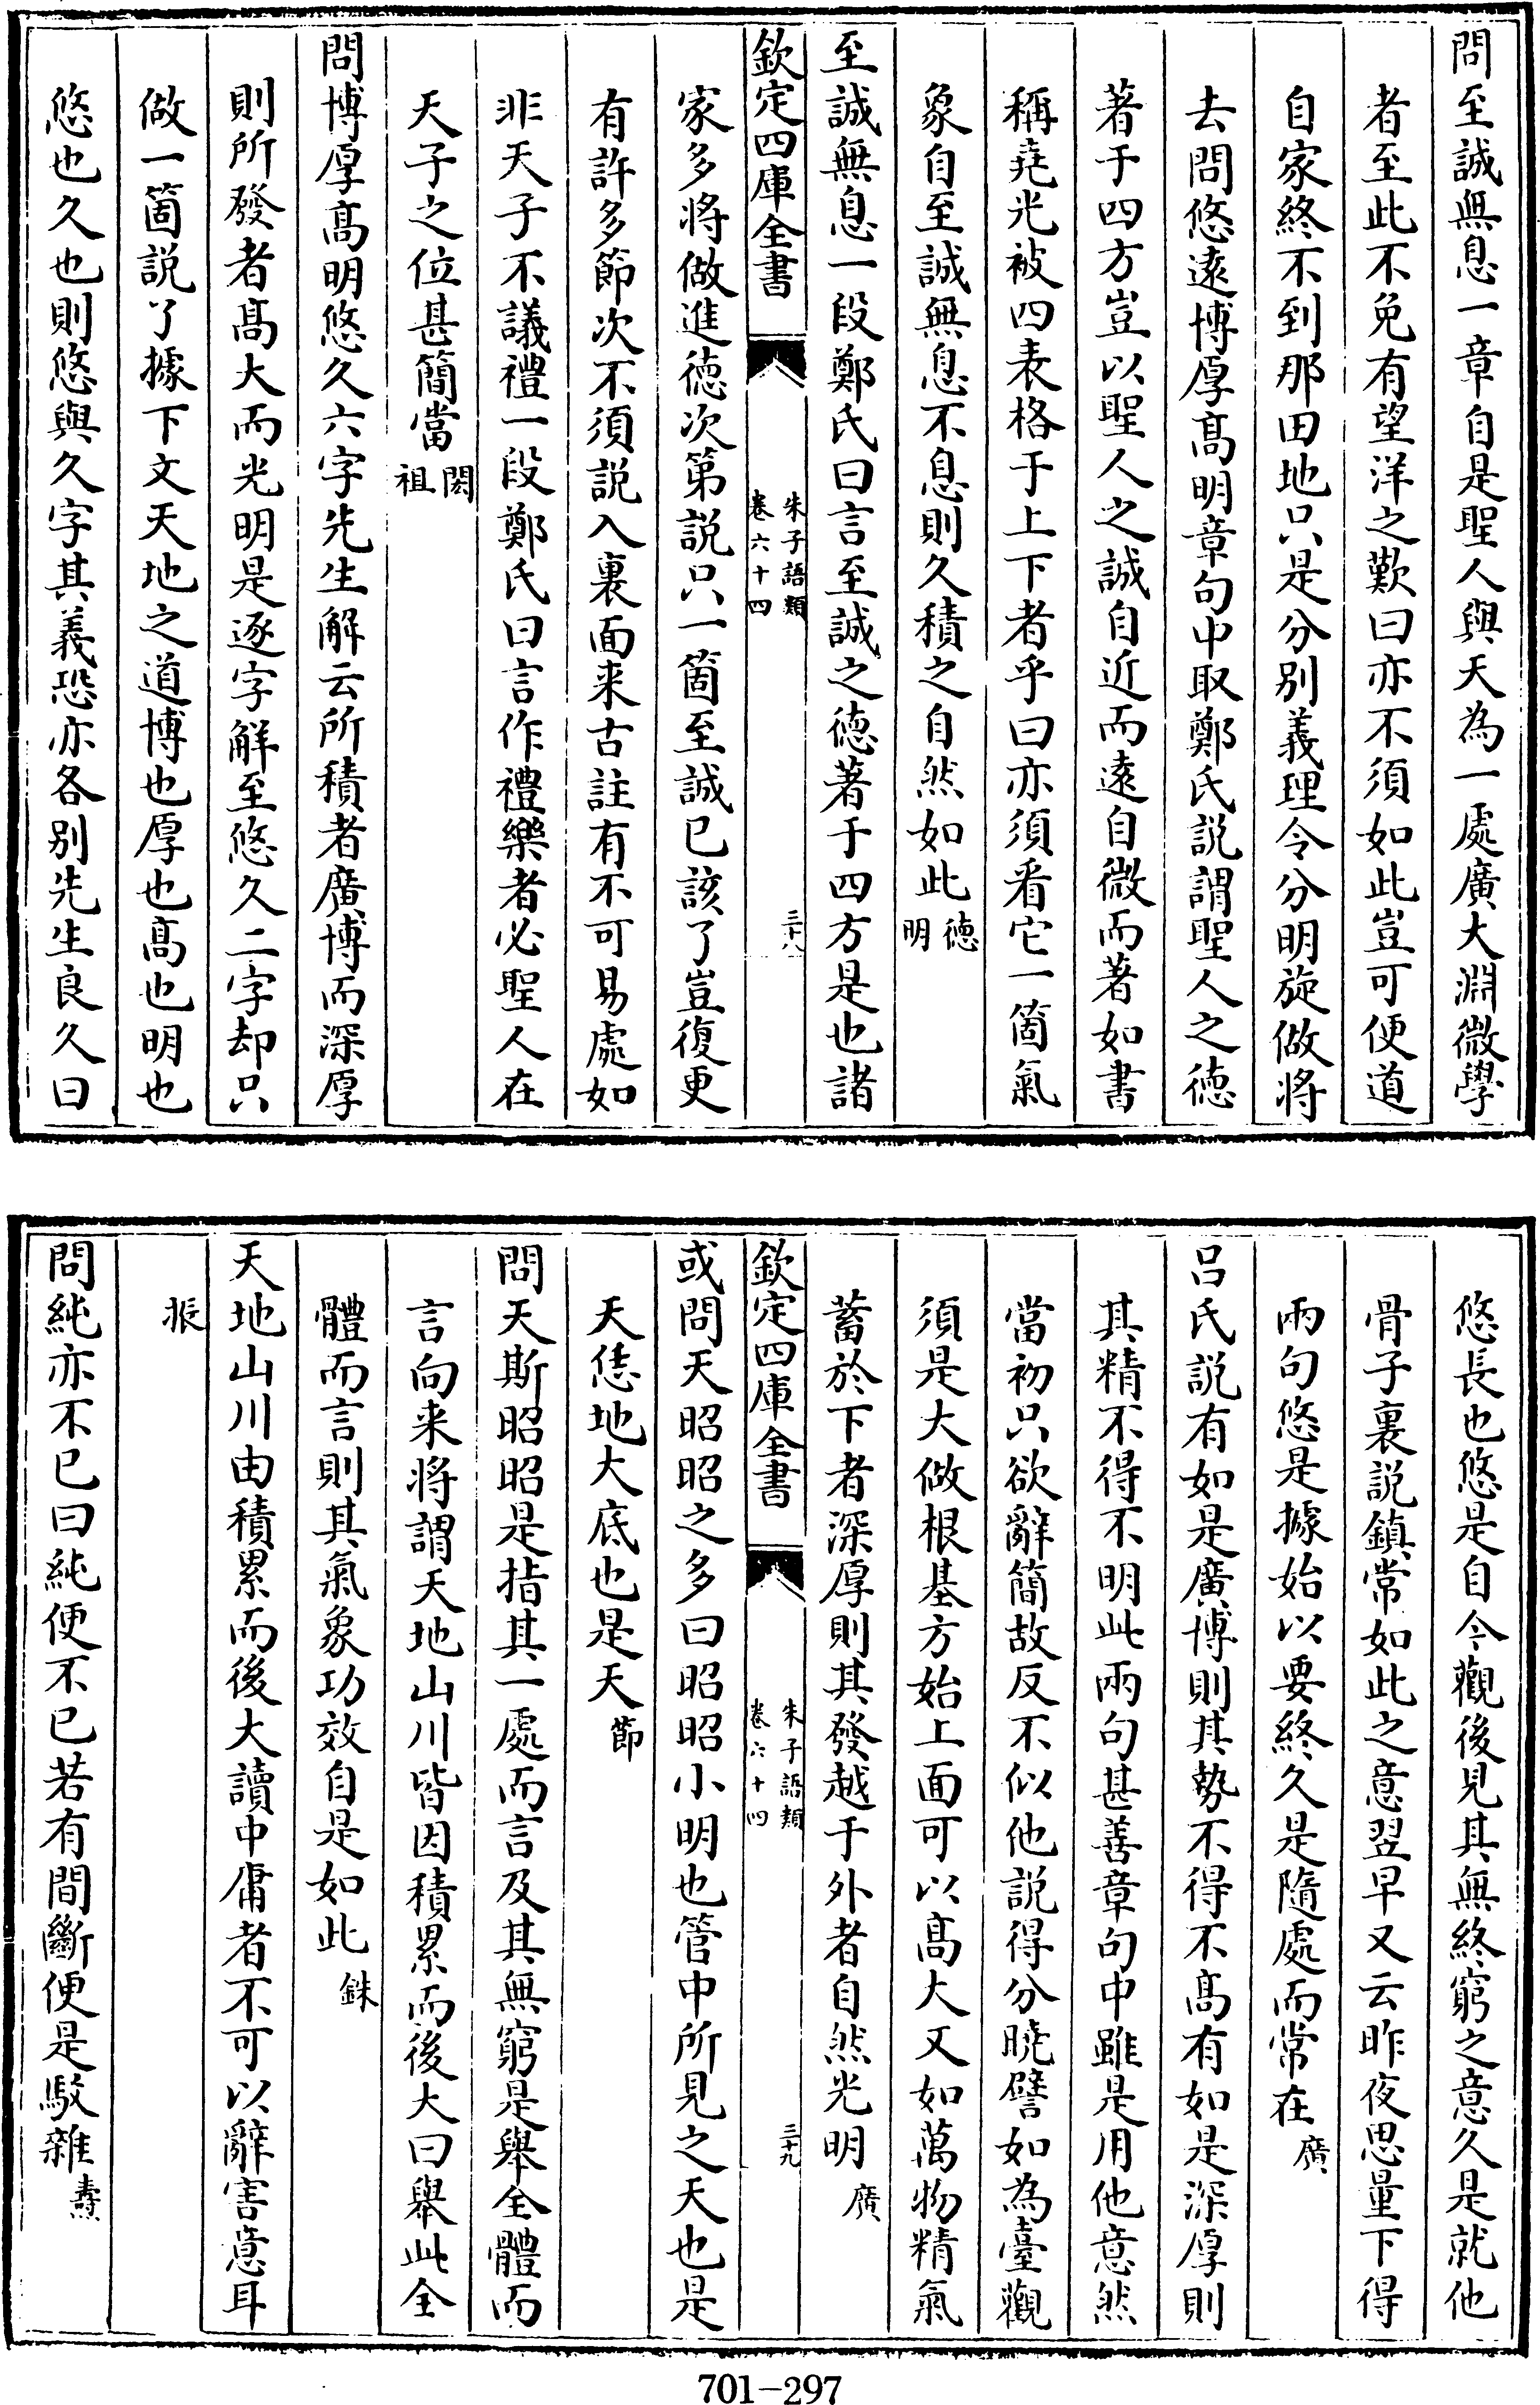 問至誠無息一章自是聖人與天為一處廣大淵微學
者至此不免有望洋之歎曰亦不須如此豈可便道
自家終不到那田地只是分别義理令分明旋做將
去問悠逺博厚髙明章句中取鄭氏説謂聖人之徳
著于四方豈以聖人之誠自近而逺自微而著如書
稱堯光被四表格于上下者乎曰亦須看它一箇氣
象自至誠無息不息則久積之自然如此徳明
至誠無息一段鄭氏曰言至誠之徳著于四方是也諸
欽定四庫全書 朱子語類 卷六十四 三十八
家多將做進徳次第説只一箇至誠已該了豈復更
有許多節次不須説入裏面来古註有不可易處如
非天子不議禮一段鄭氏曰言作禮樂者必聖人在
天子之位甚簡當閎祖
問博厚髙明悠久六字先生解云所積者廣博而深厚
則所發者髙大而光明是逐字解至悠久二字却只
做一箇説了據下文天地之道博也厚也髙也明也
悠也久也則悠與久字其義恐亦各别先生良久曰
悠長也悠是自今觀後見其無終窮之意久是就他
骨子裏説鎮常如此之意翌早又云昨夜思量下得
兩句悠是據始以要終久是隨處而常在廣
吕氏説有如是廣博則其勢不得不髙有如是深厚則
其精不得不明此兩句甚善章句中雖是用他意然
當初只欲辭簡故反不似他説得分曉譬如為臺觀
須是大做根基方始上面可以髙大又如萬物精氣
蓄於下者深厚則其發越于外者自然光明廣
欽定四庫全書 朱子語類 卷六十四 三十九
或問天昭昭之多曰昭昭小明也管中所見之天也是
天恁地大底也是天節
問天斯昭昭是指其一處而言及其無窮是舉全體而
言向来將謂天地山川皆因積累而後大曰舉此全
體而言則其氣象功效自是如此銖
天地山川由積累而後大讀中庸者不可以辭害意耳
振
問純亦不已曰純便不已若有間斷便是駁雜燾
701-297